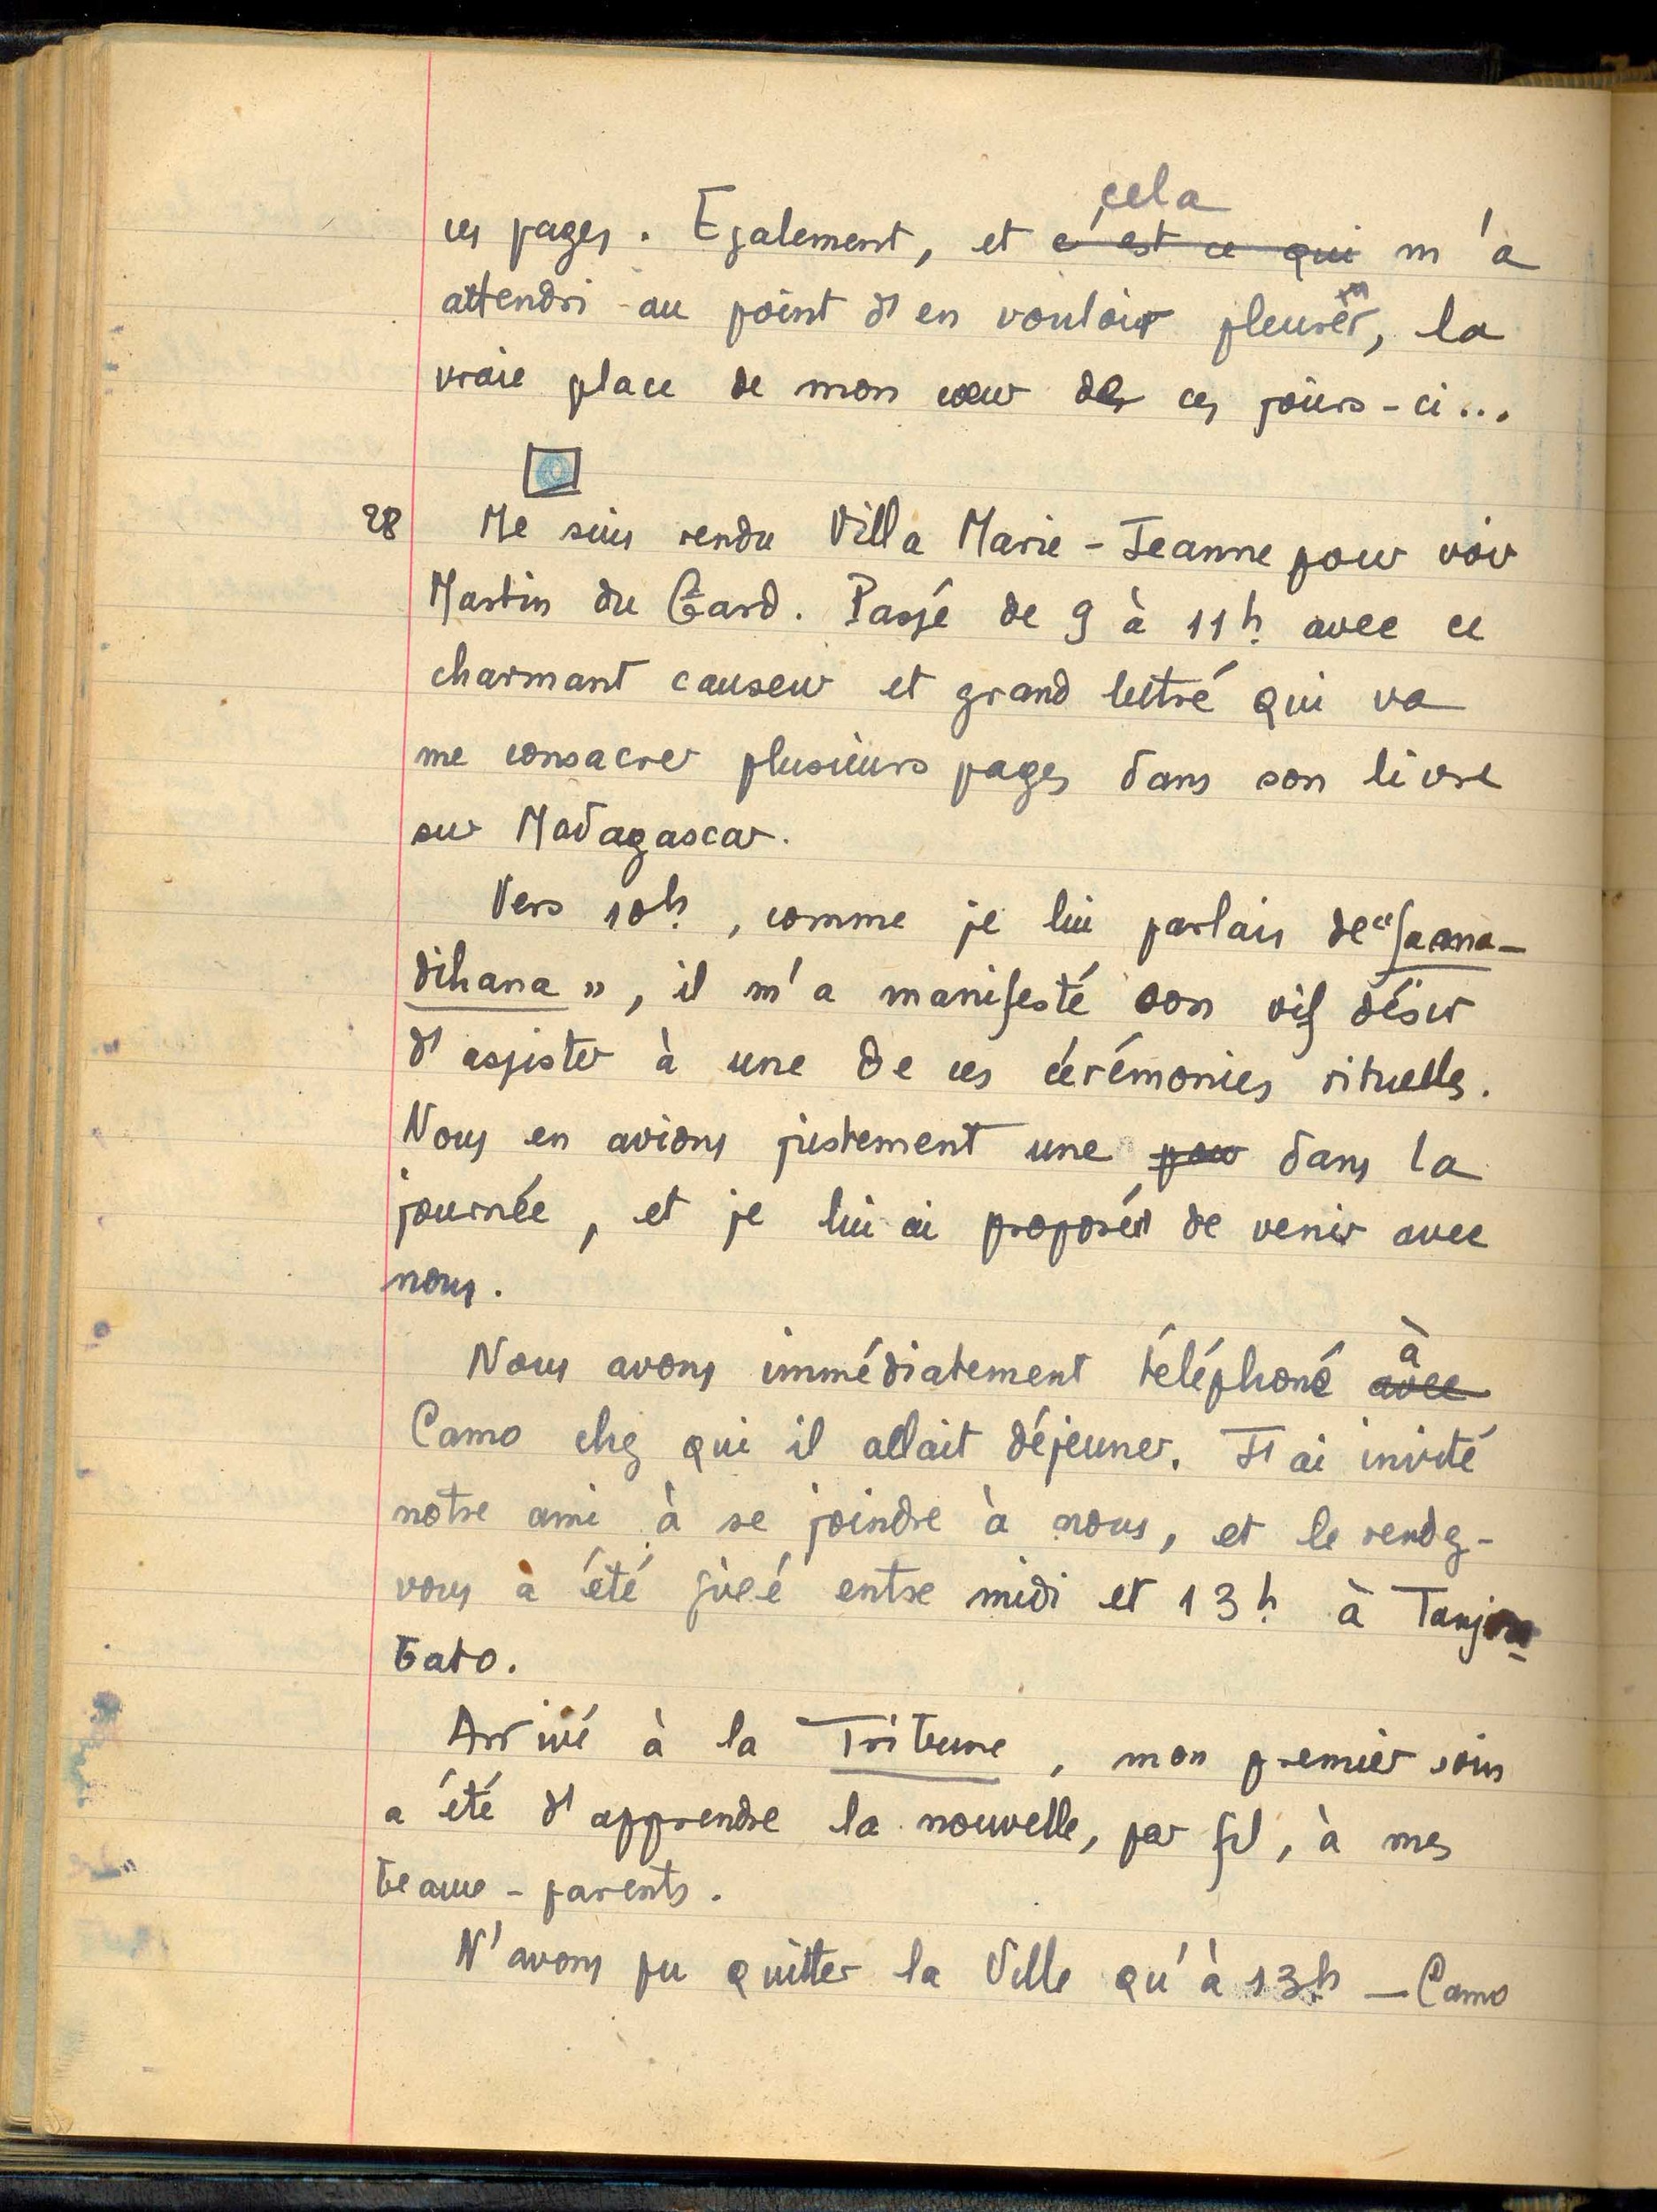 ces pages. Egalement, et ~~c'est ce qui~~ cela m'a
attendri au point d'en vouloir pleurer, la
vraie place de mon cœur de ces jours-ci...
28 Me suis rendu Villa Marie-Jeanne pour voir
Martin du Gard. Passé de 9 à 11h. avec ce
charmant causeur et grand lettré qui va
me consacrer plusieurs pages dans son livre
sur Madagascar.
Vers 10h., comme je lui parlais de "famadihana-
dihana", il m'a manifesté son vif désir
d'assister à une de ces cérémonies rituelles.
Nous en avions justement une ~~pour~~ dans la
journée, et je lui ai proposé de venir avec
nous.
Nous avons immédiatement téléphoné ~~avec~~ à
Camo chez qui il allait déjeuner. J'ai invité
notre ami à se joindre à nous, et le rendez-
vous a été fixé entre midi et 13h. à Tanjom-
bato.
Arrivé à la Tribune, mon premier soin
a été d'apprendre la nouvelle, par fil, à mes
beaux-parents.
N'avons pu quitter la Ville qu'à 13h. — Camo